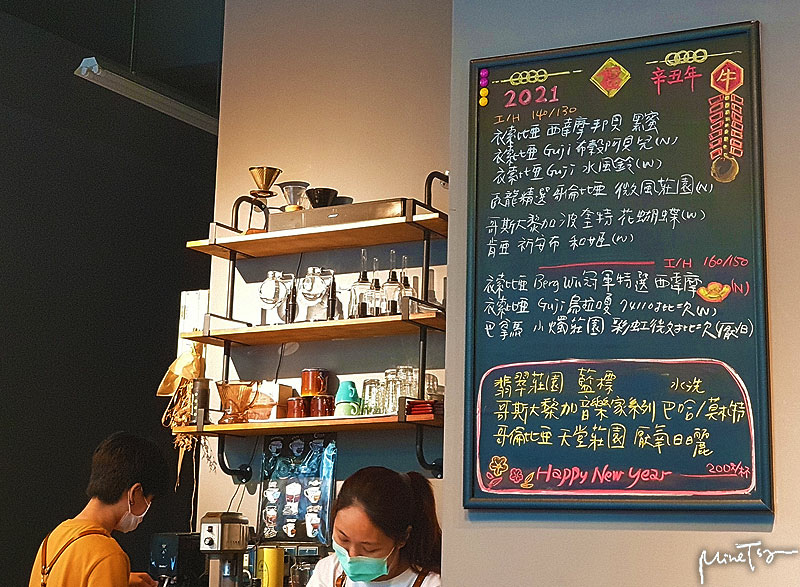 2021 辛丑年 牛
I/H 140/130
衣索比亞 西達摩 邦貝 黑蜜
衣索比亞 Guji 布穀阿貝兒(N)
衣索比亞 Guji 水風鈴(W)
成龍精選 哥倫比亞 微風莊園(N)
哥斯大黎加 波奎特 花蝴蝶(W)
肯亞 祈安布 (W)
I/H 160/150
衣索比亞 Berg Win 冠軍特選 西達摩 (N)
衣索比亞 Guji 烏拉嘎 74110 批次(N)
巴拿馬 小燭莊園 彩虹微批次(厭日)
翡翠莊園 藍標 水洗
哥斯大黎加 音樂家系列 巴哈/莫札特
哥倫比亞 天堂莊園 厭氧日曬
Happy New Year 200元/杯